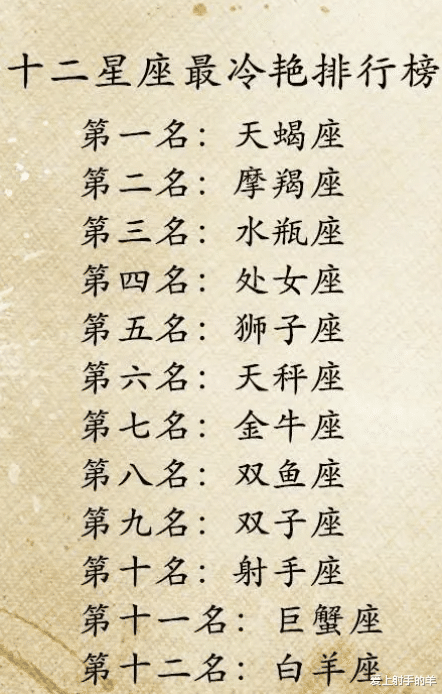 十二星座最冷艳排行榜
第一名：天蝎座
第二名：摩羯座
第三名：水瓶座
第四名：处女座
第五名：狮子座
第六名：天秤座
第七名：金牛座
第八名：双鱼座
第九名：双子座
第十名：射手座
第十一名：巨蟹座
第十二名：白羊座
爱上射手的羊